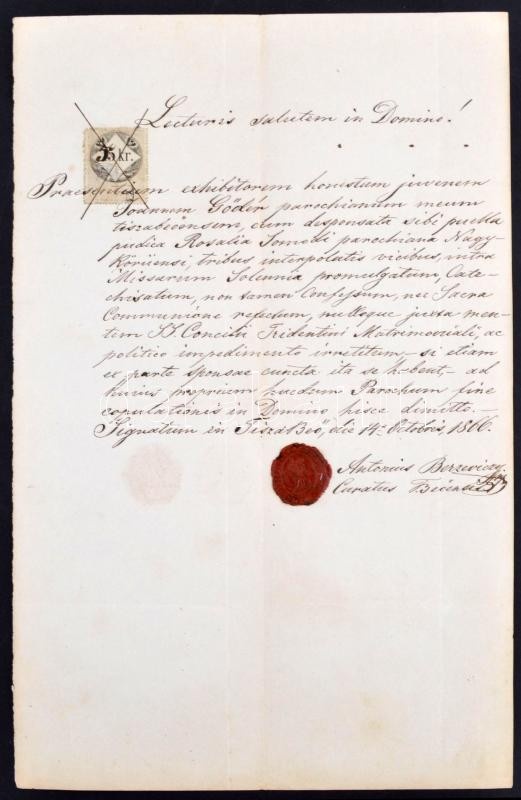 Lecturis salutem in Domino!
5 kr.
Praesentium exhibitorem honestum juvenem
Joannem Gödér parochianum meum
tiszabeöensem, cum desponsata sibi puella
pudica Rosalia Somodi parochiana Nagy-
Körüensi, tribus interpolatis vicibus, intra
Missarum Solemnia promulgatum, Cate-
chisatum, non tamen Confessum, nec Sacra
Communione refectum, nulloque juxta men-
tem SS. Concilii Tridentini Matrimoniali, ac
politico impedimento irretitum – si etiam
ex parte sponsae cuncta ita se habent – ad
hujus proprium Parochum fine
copulationis in Domino hisce dimitto. –
Signatum in TiszaBeő, die 14. Octobris, 1866.
Antonius Berzeviczy
Curatus Beöensis